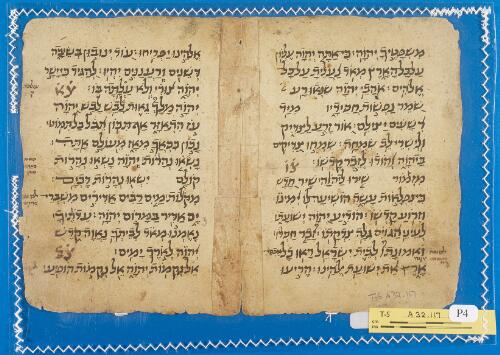 משפטיך יהוה: כי אתה יהוה עליון
על כל הארץ מאד נעלית על כל
אלהים: אהבי יהוה שנאו רע
שמר נפשות חסידיו מיד
רשעים יצילם: אור זרע לצדיק
ולישרי לב שמחה: שמחו צדיקים
ביהוה והודו לזכר קדשו:
מזמור שירו ליהוה שיר חדש
כי נפלאות עשה הושיעה לו ימינו
וזרוע קדשו: הודיע יהוה ישועתו
לעיני הגוים גלה צדקתו: זכר חסדו
ואמונתו לבית ישראל ראו כל
ארץ את ישועת אלהינו: הריעו
אלהינו יפריחו: עוד ינובון בשיבה
דשנים ורעננים יהיו: להגיד כי ישר
יהוה צורי ולא עלתה בו: צא
יהוה מלך גאות לבש לבש יהוה
עז התאזר אף תכון תבל בל תמוט
נכון כסאך מאז מעולם אתה:
נשאו נהרות יהוה נשאו נהרות
קולם ישאו נהרות דכים:
מקלות מים רבים אדירים משברי
ים אדיר במרום יהוה: עדתיך
נאמנו מאד לביתך נאוה קדש
יהוה לארך ימים: צב
אל נקמות יהוה אל נקמות הופיע
T-S A32.117
T-S A32.117 P4